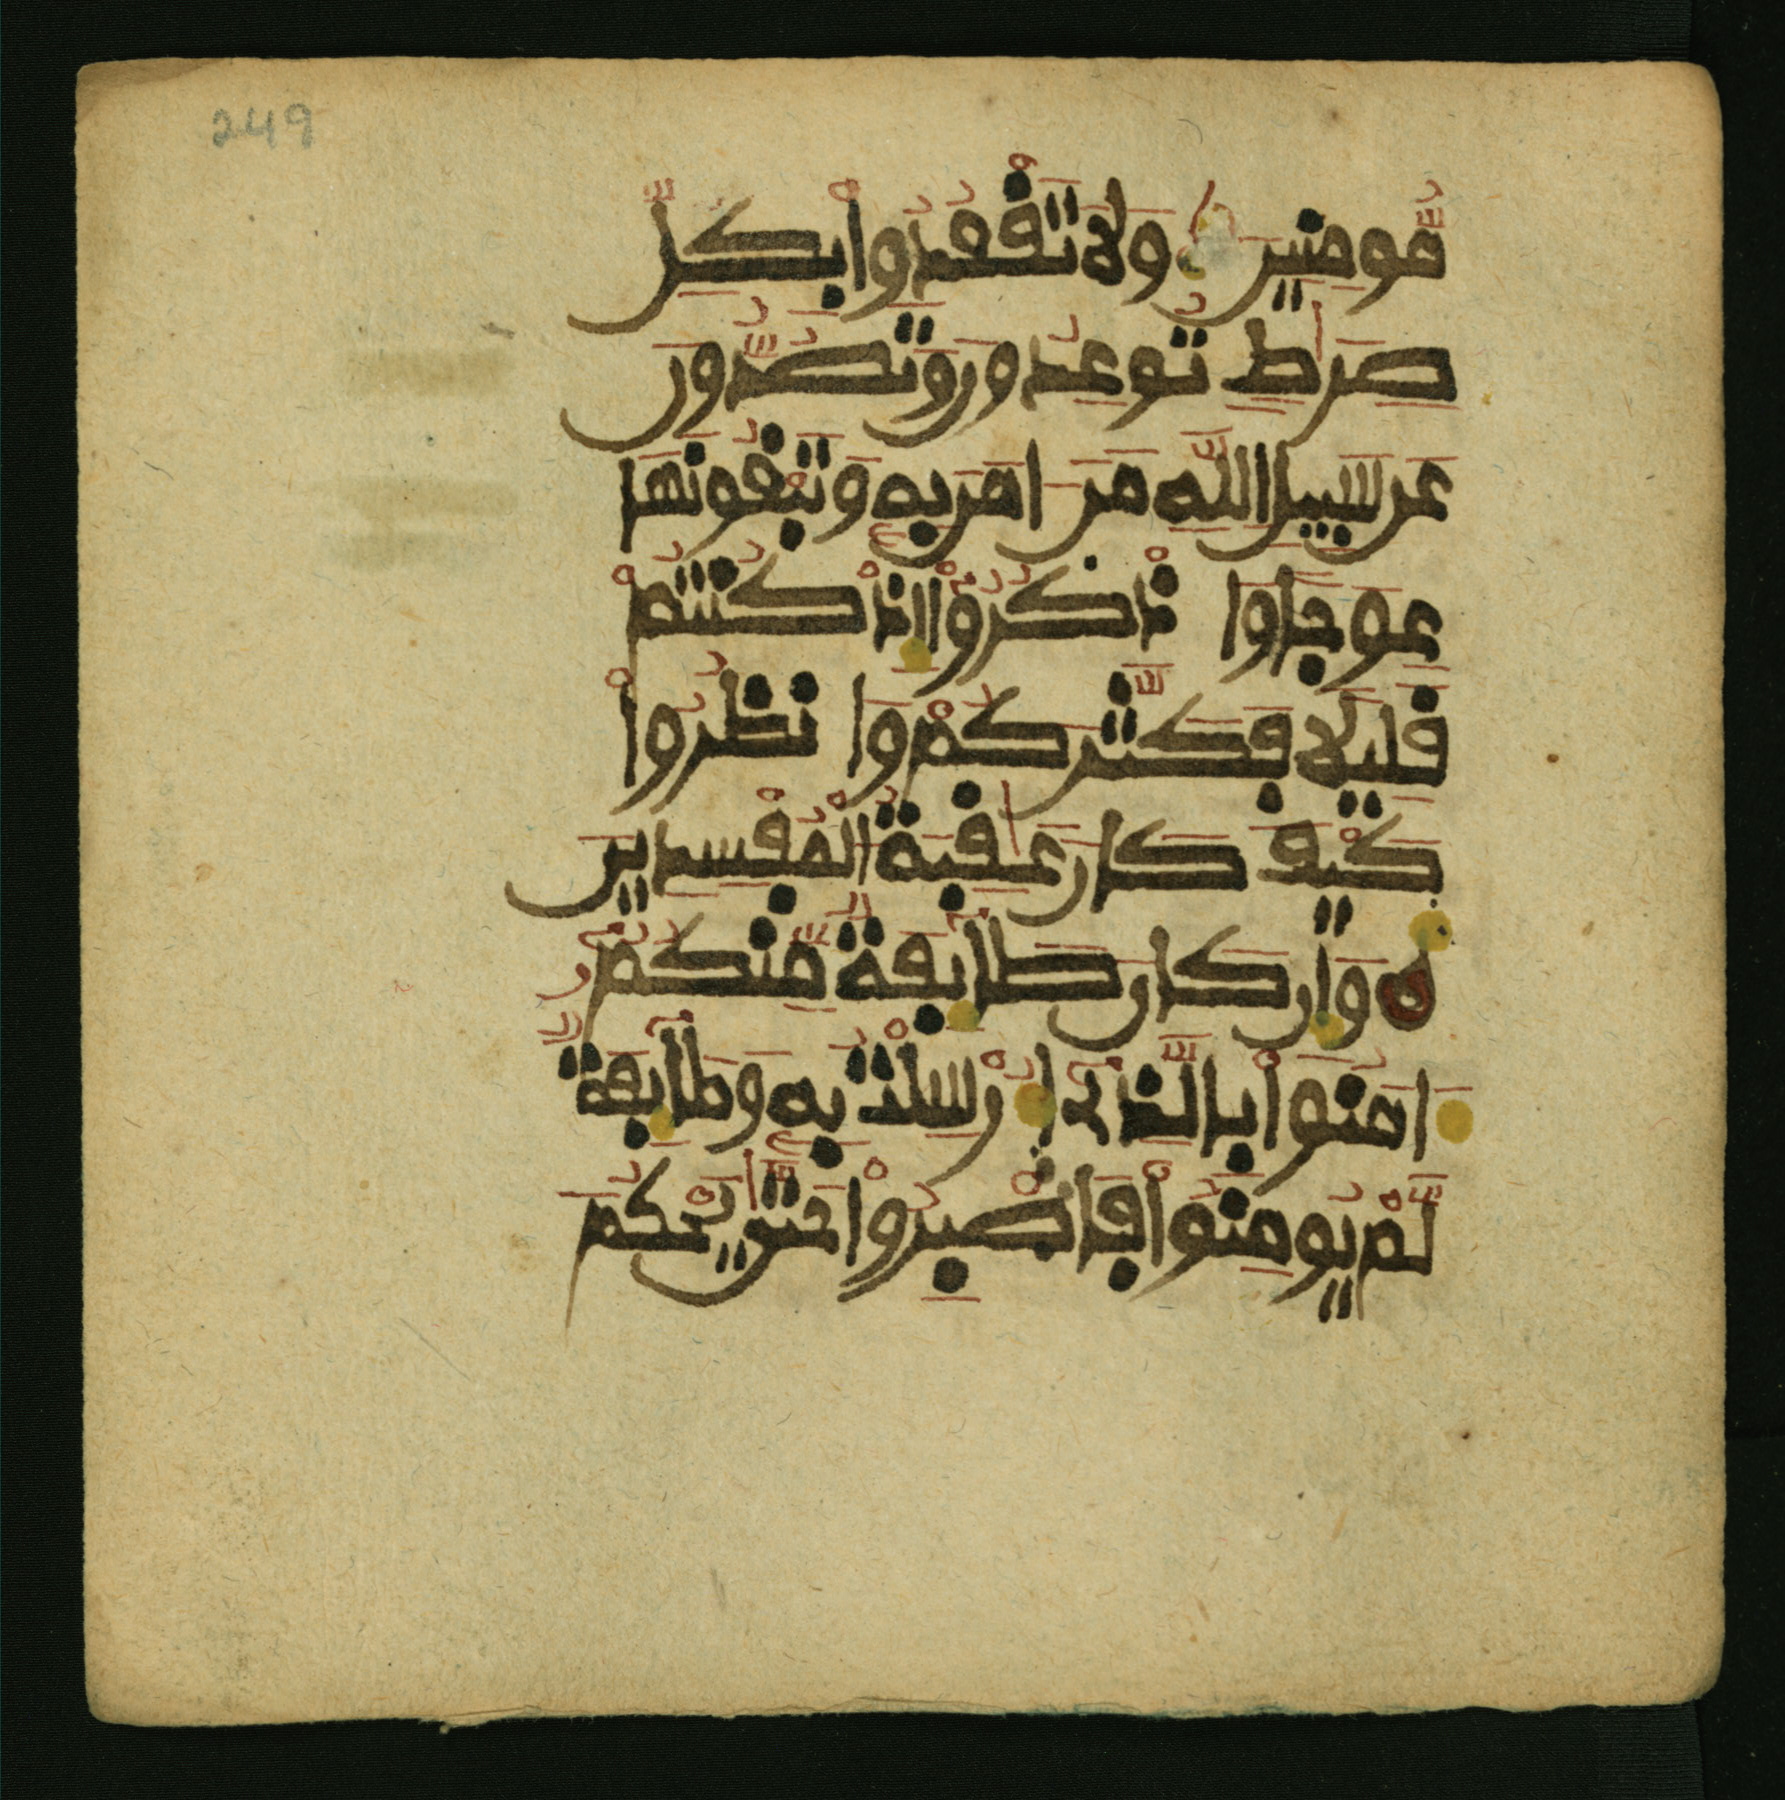 249
مُّومِنِينَ وَلَا تَقْعُدُوا۟ بِكُلِّ
صِرَٰطٍ تُوعِدُونَ وَتَصُدُّونَ
عَن سَبِيلِ اللَّهِ مَنَ امَنَ بِهِ وَتَبْغُونَهَا
عِوَجًا وَاذْكُرُوٓا۟ إِذْ كُنتُمْ
قَلِيلًا فَكَثَّرَكُمْ وَانظُرُوا۟
كَيْفَ كَانَ عَٰقِبَةُ الْمُفْسِدِينَ
وَإِن كَانَ طَآئِفَةٌ مِّنكُمُۥٓ
ءَامَنُوا۟ بِالَّذِىٓ أُرْسِلْتُ بِهِ وَطَآئِفَةٌ
لَّمْ يُومِنُوا۟ فَاصْبِرُوا۟ حَتَّىٰ يَحْكُمَ